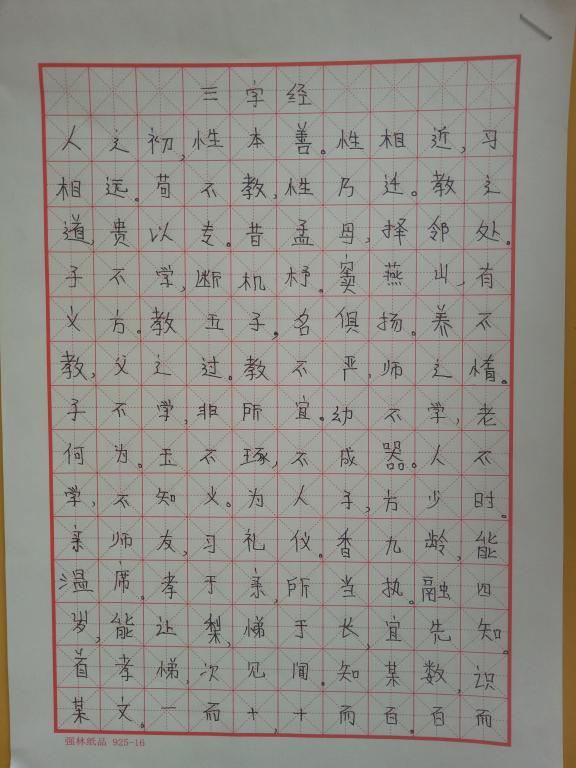 三字经
人之初,性本善。性相近,习
相远。苟不教,性乃迁。教之
道,贵以专。昔孟母,择邻处。
子不学,断机杼。窦燕山,有
义方。教五子,名俱扬。养不
教,父之过。教不严,师之惰。
子不学,非所宜。幼不学,老
何为。玉不琢,不成器。人不
学,不知义。为人子,方少时。
亲师友,习礼仪。香九龄,能
温席。孝于亲,所当执。融四
岁,能让梨,悌于长,宜先知。
首孝悌,次见闻。知某数,识
某文。一而十,十而百。百而
强林纸品 925-16